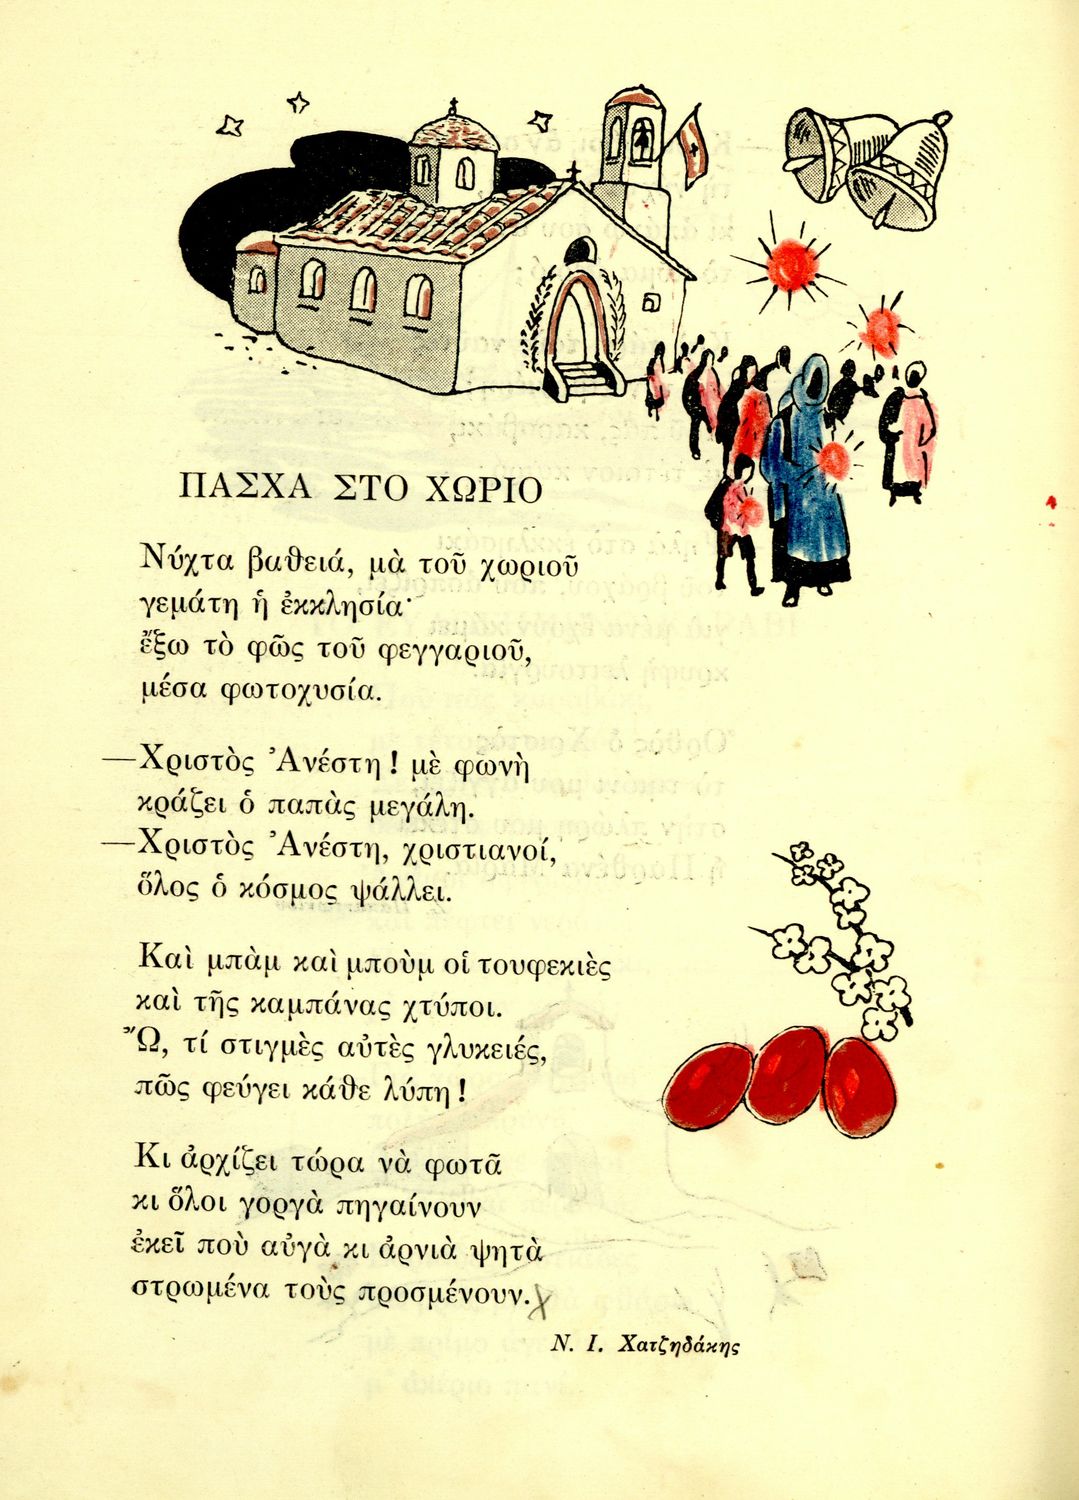 ΠΑΣΧΑ ΣΤΟ ΧΩΡΙΟ
Νύχτα βαθειά, μὰ τοῦ χωριοῦ
γεμάτη ἡ ἐκκλησία·
ἔξω τὸ φῶς τοῦ φεγγαριοῦ,
μέσα φωτοχυσία.
—Χριστὸς Ἀνέστη! μὲ φωνὴ
κράζει ὁ παπὰς μεγάλη.
—Χριστὸς Ἀνέστη, χριστιανοί,
ὅλος ὁ κόσμος ψάλλει.
Καὶ μπὰμ καὶ μποὺμ οἱ τουφεκιὲς
καὶ τῆς καμπάνας χτύποι.
Ὤ, τί στιγμὲς αὐτὲς γλυκειές,
πῶς φεύγει κάθε λύπη!
Κι ἀρχίζει τώρα νὰ φωτᾶ
κι ὅλοι γοργὰ πηγαίνουν
ἐκεῖ ποὺ αὐγὰ κι ἀρνιὰ ψητὰ
στρωμένα τοὺς προσμένουν.
Ν. Ι. Χατζηδάκης